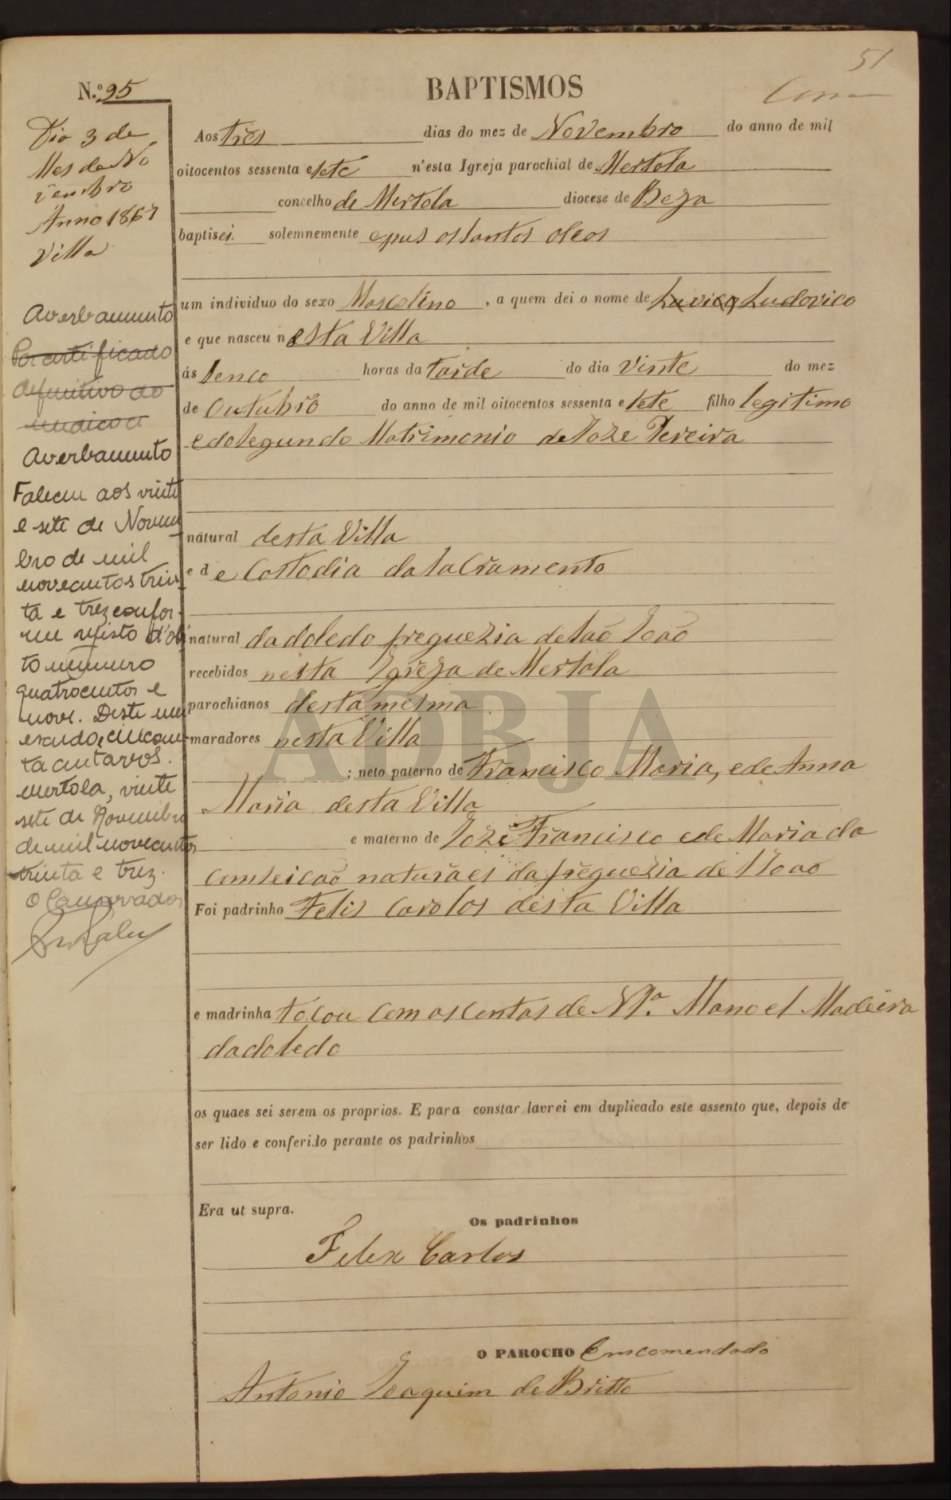 51
N.º 95
BAPTISMOS
Dia 3 de
Mes de No
vembro
Anno 1867
Villa
Aos tres dias do mez de Novembro do anno de mil
oitocentos sessenta e sete n'esta Igreja parochial de Mertola
concelho de Mertola diocese de Beja
baptisei solemnemente e pus os santos oleos
um individuo do sexo Mascolino, a quem dei o nome de Ludovico
e que nasceu nesta Villa
ás senco horas da tarde do dia vinte do mez
de Outubro do anno de mil oitocentos sessenta e sete filho legitimo
e do segundo Matrimonio de Joze Pereira
natural desta Villa
e de Costodia da Sacramento
natural da doledo freguezia de São João
recebidos nesta Igreja de Mertola
parochianos desta mesma
maradores nesta Villa
; neto paterno de Francisco Maria, e de Anna
Maria desta Villa
e materno de Joze Francisco e de Maria da
Comseicão naturaes da freguezia de S João
Foi padrinho Felis Carolos desta Villa
e madrinha tocou com as contas de N. Manoel Madeira
da doledo
os quaes sei serem os proprios. E para constar lavrei em duplicado este assento que, depois de
ser lido e conferido perante os padrinhos
Era ut supra.
Os padrinhos
Felix Carlos
O PAROCHO Emcomendado
Antonio Joaquim de Britto
Averbamento
Por certificado
definitivo do
Averbamento
Faleceu aos vinte
e sete de Novem
bro de mil
novecentos trin-
ta e trez confor-
me registo d'obi
to numero
quatrocentos e
nove. Deste um
escudo, cincoen-
ta centavos.
Mertola, vinte
sete de Novembro
de mil novecentos
trinta e trez.
O Conservador
ADBJA